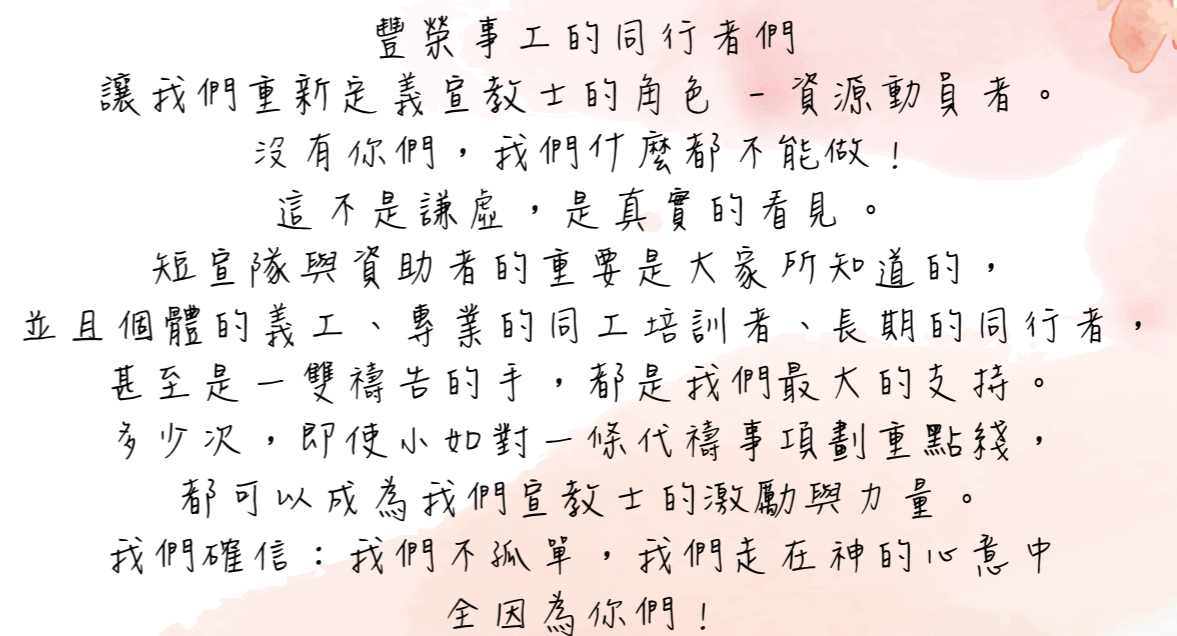 豐榮事工的同行者們
讓我們重新定義宣教士的角色 - 資源動員者。
沒有你們，我們什麼都不能做！
這不是謙虛，是真實的看見。
短宣隊與資助者的重要是大家所知道的，
並且個體的義工、專業的同工培訓者、長期的同行者，
甚至是一雙禱告的手，都是我們最大的支持。
多少次，即使小如對一條代禱事項劃重點綫，
都可以成為我們宣教士的激勵與力量。
我們確信：我們不孤單，我們走在神的心意中
全因為你們！